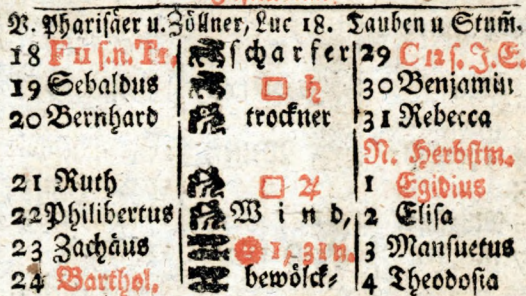 V. Pharisäer u. Zöllner, Luc 18. Tauben u Stum̃.
18 F 11 s. n. Tr. scharfer 29 C 12 s. J. E.
19 Sebaldus □ ♄ 30 Benjamin
20 Bernhard trockner 31 Rebecca
N. Herbstm.
21 Ruth □ ♃ 1 Egidius
22 Philibertus Wind, 2 Elisa
23 Zachäus 1, 31 n. 3 Mansuetus
24 Barthol. bewölck⸗ 4 Theodosia